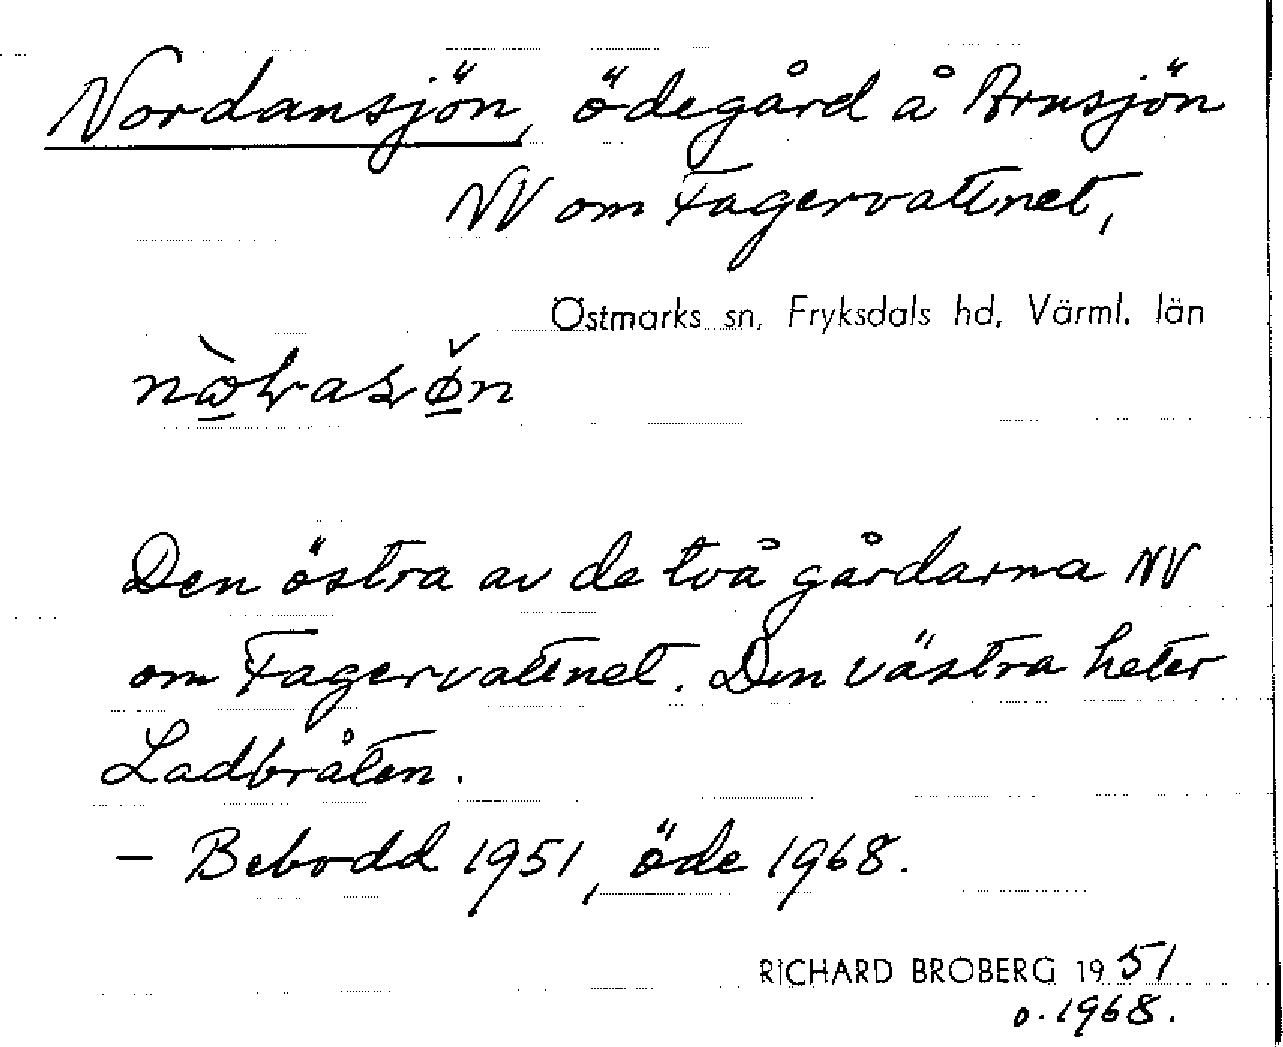 Nordansjön, ödegård å Arnsjön
NV om Fagervattnet,
Östmarks sn, Fryksdals hd, Värml. län
Den östra av de två gårdarna NV
om Fagervattnet. Den västra heter
Ladbråten.
– Bebodd 1951, öde 1968.
RICHARD BROBERG 1951
o. 1968.